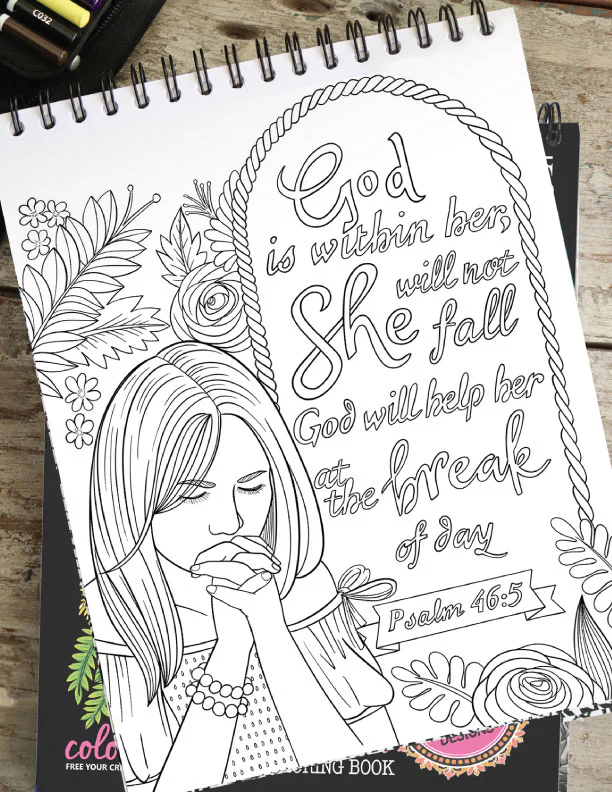 C032
God
is within her,
She will not
fall
God will help her
at
the break
of day
Psalm 46:5
FREE YOUR
DESIGNS
BOOK